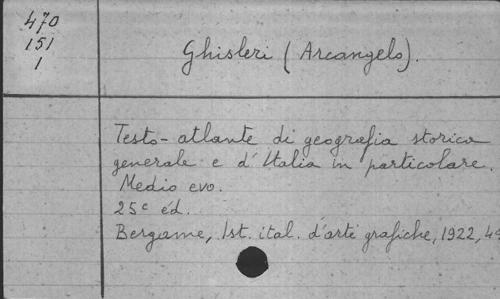 470
151
1
Ghisleri (Arcangelo).
Testo-atlante di geografia storica
generale e d'Italia in particolare.
Medio evo.
25e éd.
Bergame, Ist. ital. d'arti grafiche, 1922, 4º